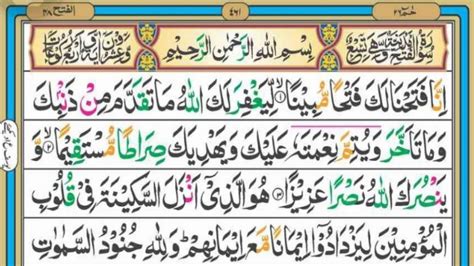 الفتح ٤٨
٤٦١
حٰم ٢٦
سُوْرَةُ الْفَتْحِ مَدَنِيَّةٌ وَّهِيَ تِسْعٌ
بِسْمِ اللّٰهِ الرَّحْمٰنِ الرَّحِيْمِ
وَّعِشْرُوْنَ اٰيَةً وَّاَرْبَعُ رُكُوْعَاتٍ
اِنَّا فَتَحْنَا لَكَ فَتْحًا مُّبِيْنًا ۙ‏﴿۱﴾ لِّيَغْفِرَ لَكَ اللّٰهُ مَا تَقَدَّمَ مِنْ ذَنْۢبِكَ
وَمَا تَاَخَّرَ وَيُتِمَّ نِعْمَتَهٗ عَلَيْكَ وَيَهْدِيَكَ صِرَاطًا مُّسْتَقِيْمًا ۙ‏﴿۲﴾ وَّ
يَنْصُرَكَ اللّٰهُ نَصْرًا عَزِيْزًا ‏﴿۳﴾ هُوَ الَّذِيْۤ اَنْزَلَ السَّكِيْنَةَ فِيْ قُلُوْبِ
الْمُؤْمِنِيْنَ لِيَزْدَادُوْۤا اِيْمَانًا مَّعَ اِيْمَانِهِمْ ؕ وَلِلّٰهِ جُنُوْدُ السَّمٰوٰتِ